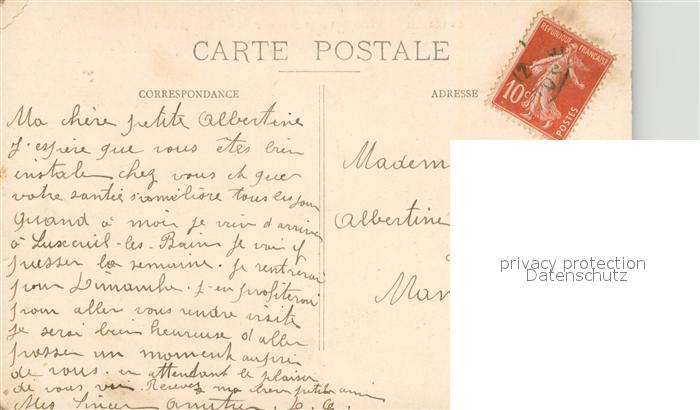 CARTE POSTALE
CORRESPONDANCE
ADRESSE
REPUBLIQUE FRANÇAISE
10c
POSTES
Ma chère petite Albertine
J'espère que vous êtes bien
instalé chez vous et que
votre santé s'améliore tous les jour
Quand à moi je vien d'arriver
à Luxeuil-les-Bain je vai y
passer la semaine. Je rentrerai
pour Dimanche. J'en profiterai
pour aller vous rendre visite
je serai bien heureuse d'aller
passer un moment auprè
de vous. en attendant le plaisir
de vous voir. Recevez ma chère petite amie
Mes sincer amitié
Madem
Albertine
Man
privacy protection
Datenschutz